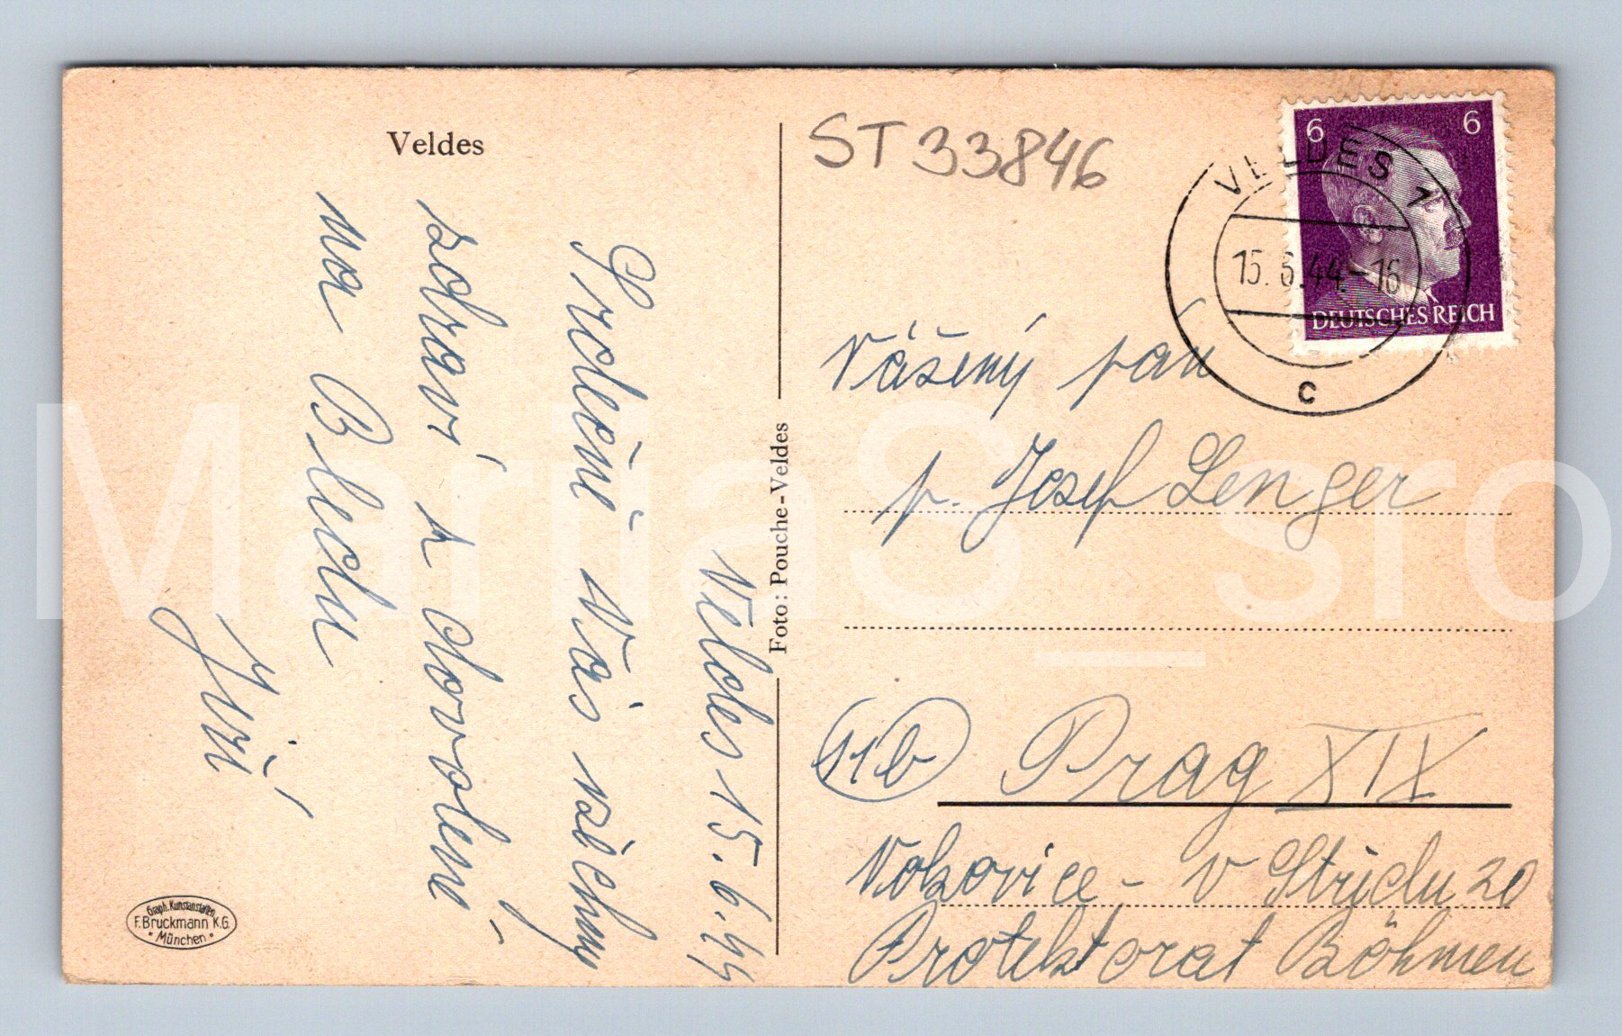 Veldes
ST 33846
6 6
DEUTSCHES REICH
VELDES 1
15.6.44.-16
c
Veldes 15.6.44
Srdečně Vás všechny
zdraví z dovolené
na Bledu
Jiří
Foto: Pouche-Veldes
Vážený pán
p. Josef Lenger
11b Prag XIX
Vokovice - V Středu 20
Protektorat Böhmen
Graph. Kunstanstalten
F. Bruckmann K.G.
München
MariiaS_sro